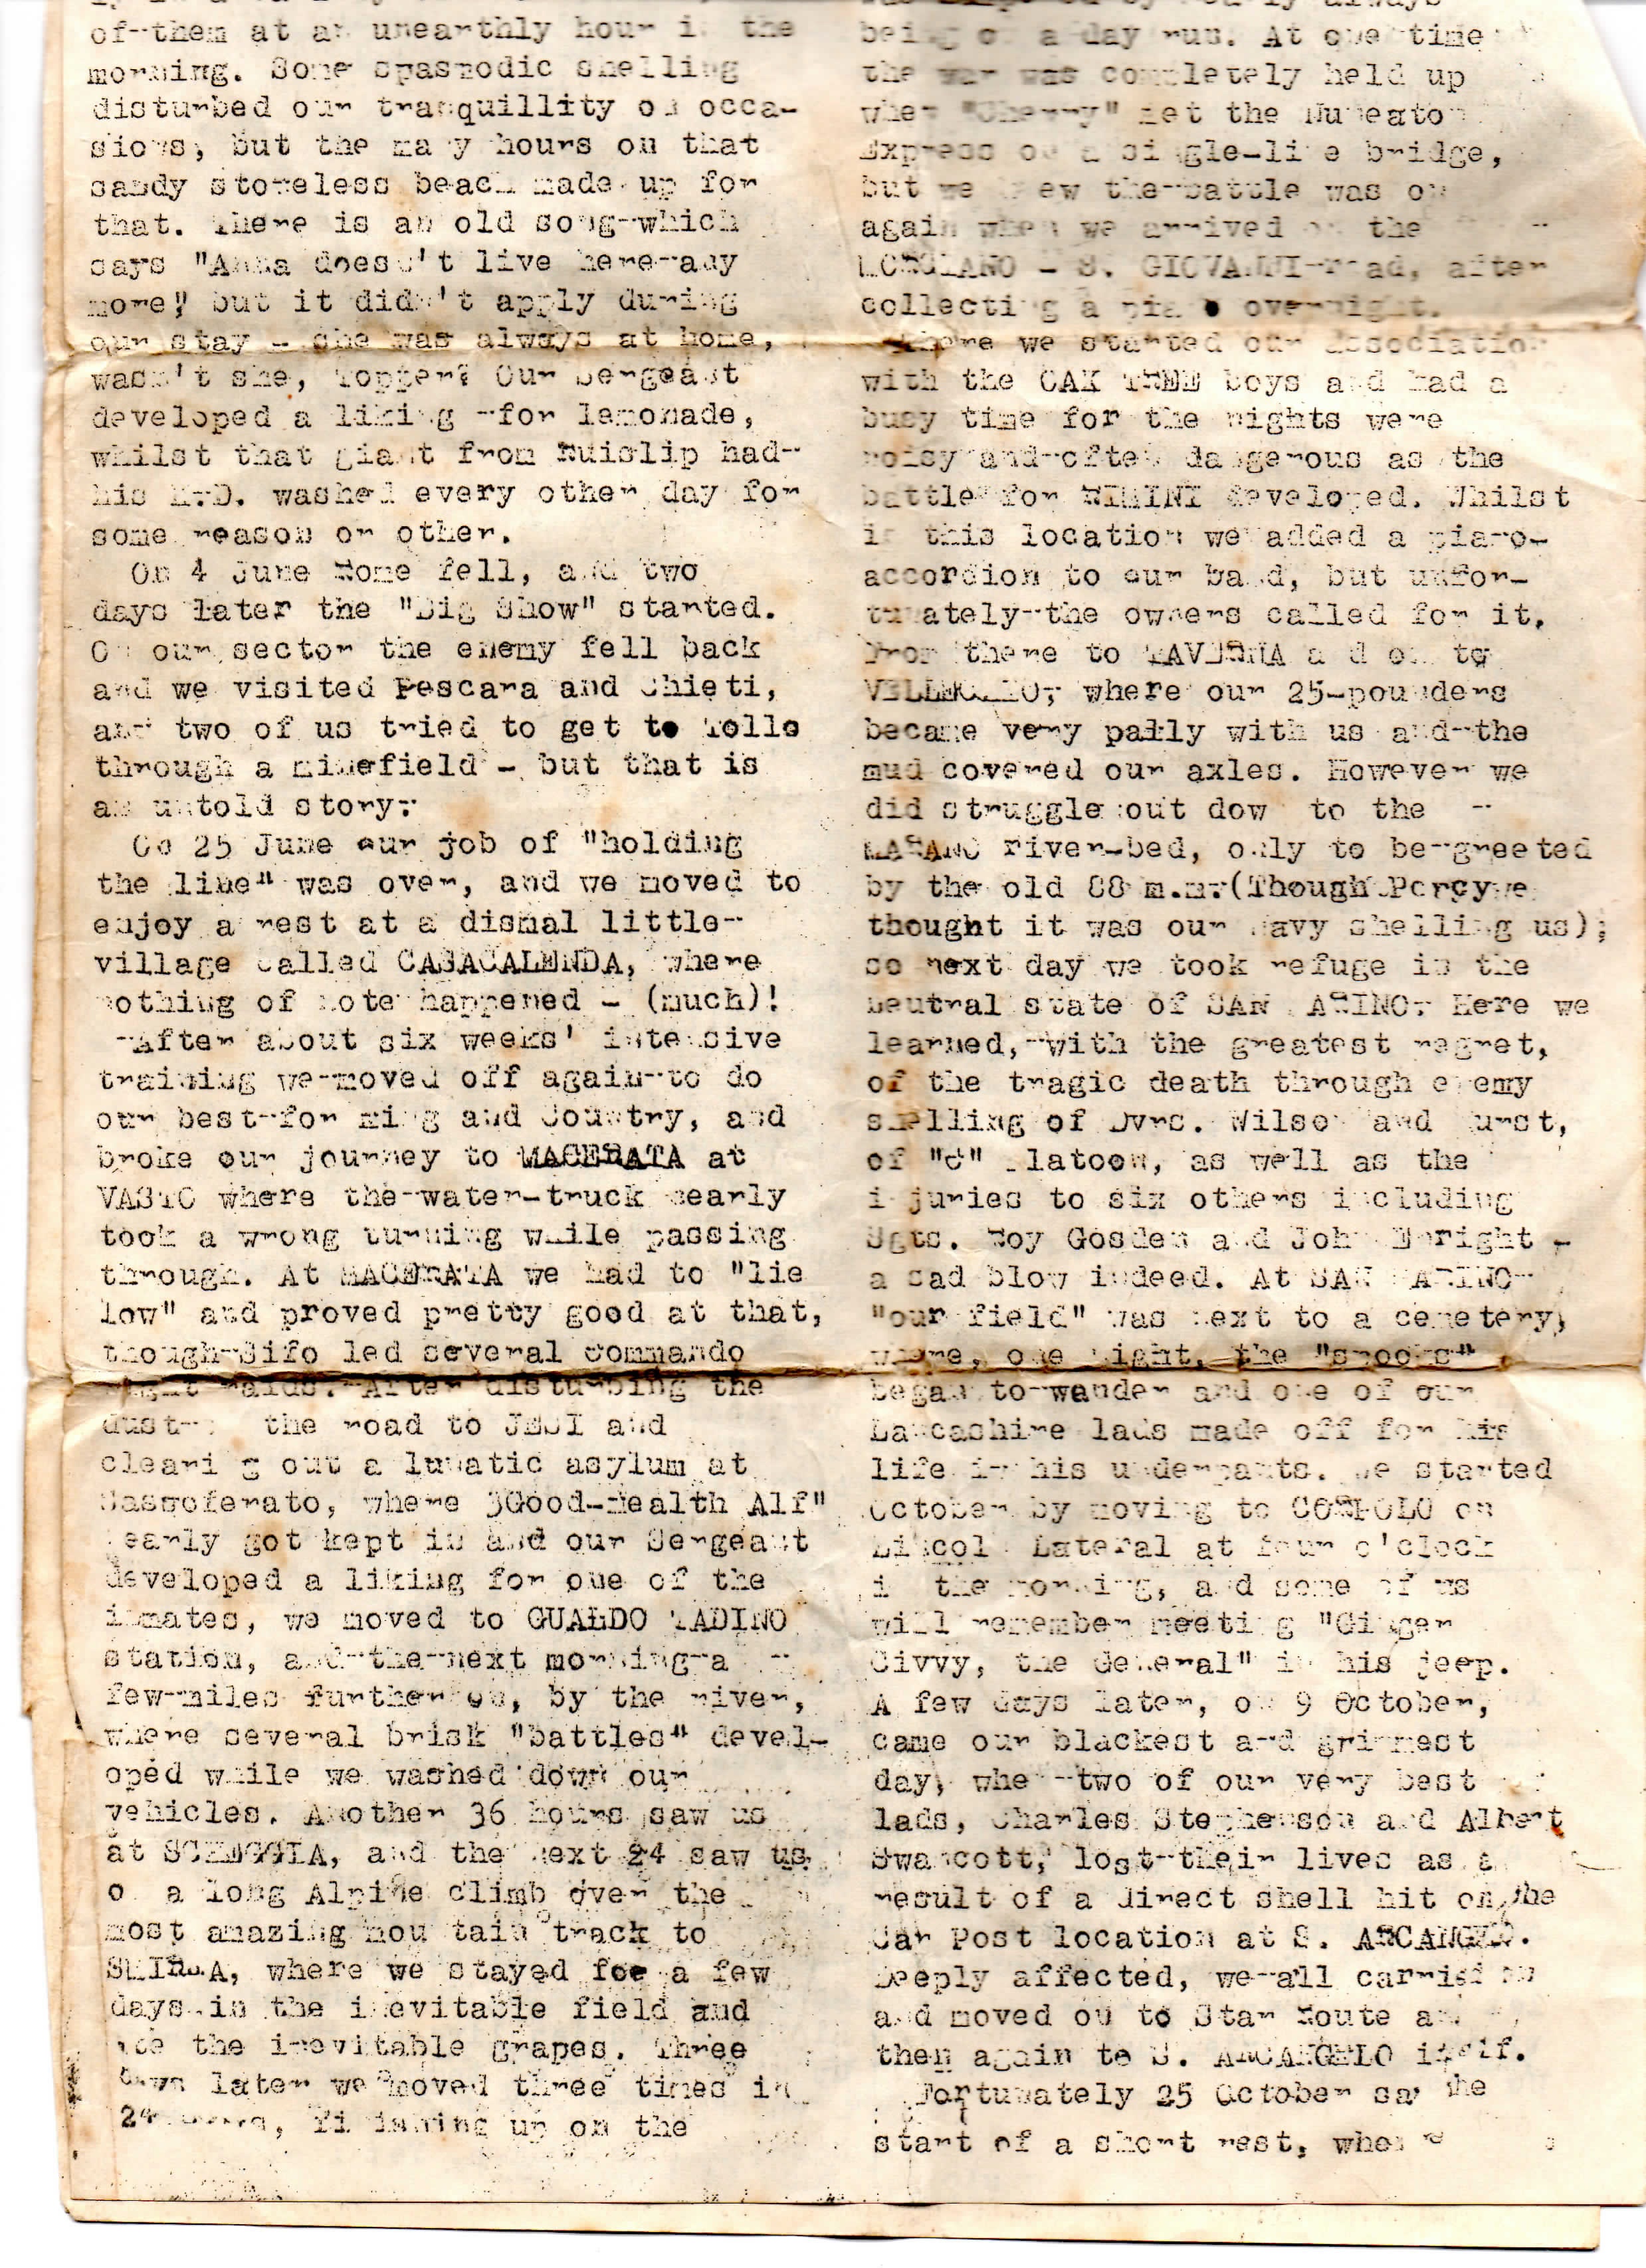 of them at an unearthly hour in the
morning. Some spasmodic shelling
disturbed our tranquillity on occa-
sions, but the many hours on that
sandy stoneless beach made up for
that. There is an old song which
says "Anna doesn't live here any
more" but it didn't apply during
our stay - she was always at home,
wasn't she, Topper? Our Sergeant
developed a liking for lemonade,
whilst that giant from Ruislip had
his K.D. washed every other day for
some reason or other.
On 4 June Rome fell, and two
days later the "Big Show" started.
On our sector the enemy fell back
and we visited Pescara and Chieti,
and two of us tried to get to Tollo
through a minefield - but that is
an untold story.
On 25 June our job of "holding
the line" was over, and we moved to
enjoy a rest at a dismal little
village called CASACALENDA, where
nothing of note happened - (much)!
After about six weeks' intensive
training we moved off again to do
our best for King and Country, and
broke our journey to MACERATA at
VASTO where the water-truck nearly
took a wrong turning while passing
through. At MACERATA we had to "lie
low" and proved pretty good at that,
though Sifo led several commando
night raids. After disturbing the
dust the road to JESI and
clearing out a lunatic asylum at
Sassoferato, where "Good-Health Alf"
nearly got kept in and our Sergeant
developed a liking for one of the
inmates, we moved to GUALDO TADINO
station, and the next morning a
few miles further on, by the river,
where several brisk "battles" devel-
oped while we washed down our
vehicles. Another 36 hours saw us
at SCHEGGIA, and the next 24 saw us
on a long Alpine climb over the
most amazing mountain track to
SMIRRA, where we stayed for a few
days in the inevitable field and
ate the inevitable grapes. Three
days later we moved three times in
24 hours, finishing up on the
being on a day run. At one time
the war was completely held up
when "Cherry" met the Nuneaton
Express on a single-line bridge,
but we knew the battle was on
again when we arrived on the
LONGIANO - S. GIOVANNI road, after
collecting a piano overnight.
There we started our association
with the OAK TREE boys and had a
busy time for the nights were
noisy and often dangerous as the
battle for RIMINI developed. Whilst
in this location we added a piano-
accordion to our band, but unfor-
tunately the owners called for it.
From there to TAVERNA and on to
where our 25-pounders
became very pally with us and the
mud covered our axles. However we
did struggle out down to the
MARANO river-bed, only to be greeted
by the old 88 m.m. (Though Percy we
thought it was our Navy shelling us);
so next day we took refuge in the
neutral state of SAN MARINO. Here we
learned, with the greatest regret,
of the tragic death through enemy
shelling of Dvrs. Wilson and Hurst,
of "C" Platoon, as well as the
injuries to six others including
Sgts. Roy Gosden and John Enright -
a sad blow indeed. At SAN MARINO
"our field" was next to a cemetery,
where, one night, the "spooks"
began to wander and one of our
Lancashire lads made off for his
life in his underpants. We started
October by moving to CORPOLO on
Lincoln Lateral at four o'clock
in the morning, and some of us
will remember meeting "Ginger
Civvy, the General" in his jeep.
A few days later, on 9 October,
came our blackest and grimmest
day, when two of our very best
lads, Charles Stephenson and Albert
Swanscott, lost their lives as a
result of a direct shell hit on the
Car Post location at S. ARCANGELO.
Deeply affected, we all carried on
and moved on to Star Route and
then again to S. ARCANGELO itself.
Fortunately 25 October saw the
start of a short rest, when we